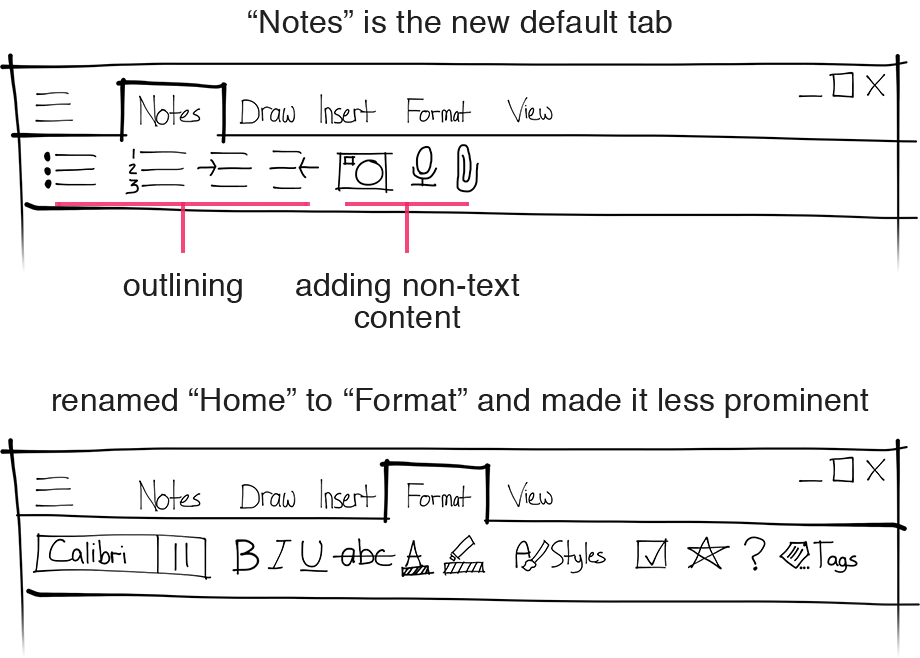 “Notes” is the new default tab
Notes Draw Insert Format View
1
2
3
outlining
adding non-text
content
renamed “Home” to “Format” and made it less prominent
Notes Draw Insert Format View
Calibri 11 B I U abc A A Styles ? Tags